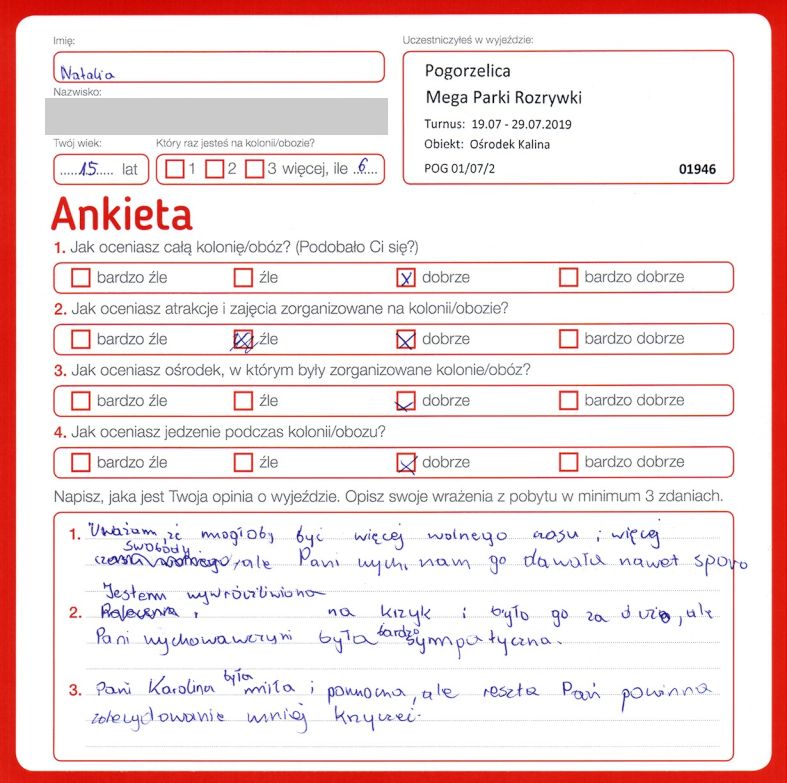 Imię:
Natalia
Nazwisko:
Twój wiek:
15 lat
Który raz jesteś na kolonii/obozie?
1 2 3 więcej, ile 6
Uczestniczyłeś w wyjeździe:
Pogorzelica
Mega Parki Rozrywki
Turnus: 19.07 - 29.07.2019
Obiekt: Ośrodek Kalina
POG 01/07/2 01946
Ankieta
1. Jak oceniasz całą kolonię/obóz? (Podobało Ci się?)
bardzo źle źle dobrze bardzo dobrze
2. Jak oceniasz atrakcje i zajęcia zorganizowane na kolonii/obozie?
bardzo źle źle dobrze bardzo dobrze
3. Jak oceniasz ośrodek, w którym były zorganizowane kolonie/obóz?
bardzo źle źle dobrze bardzo dobrze
4. Jak oceniasz jedzenie podczas kolonii/obozu?
bardzo źle źle dobrze bardzo dobrze
Napisz, jaka jest Twoja opinia o wyjeździe. Opisz swoje wrażenia z pobytu w minimum 3 zdaniach.
1. Uważam, że mogłoby być więcej wolnego czasu i więcej
swobody, ale Pani wych. nam go dawała nawet sporo
Jestem wywróżliwiona
2. na krzyk i było go za dużo, ale
Pani wychowawczyni była bardzo sympatyczna.
3. Pani Karolina była miła i pomocna, ale reszta Pań powinna
zdecydowanie mniej krzyczeć.